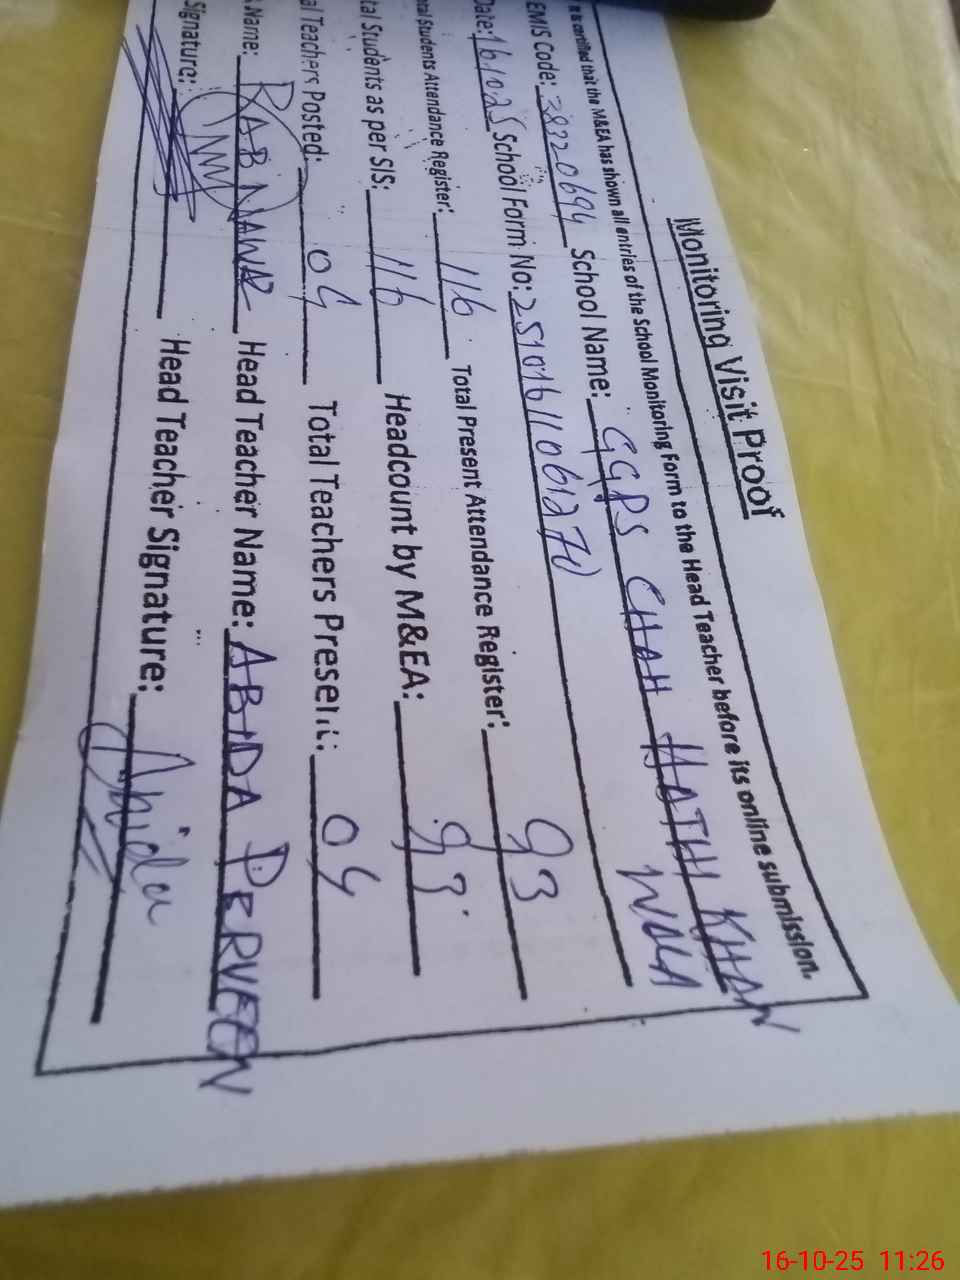 Monitoring Visit Proof
is certified that the M&EA has shown all entries of the School Monitoring Form to the Head Teacher before its online submission.
EMIS Code: 38220694 School Name: GGPS CHAH HATHI KHAN WALA
Date: 16/10.25 School Form No: 2510161106127
tal Students Attendance Register: 116 Total Present Attendance Register: 93
tal Students as per SIS: 116 Headcount by M&EA: 93
al Teachers Posted: 04 Total Teachers Present: 04
Name: RAB NAWAZ Head Teacher Name: ABIDA PERVEEN
Signature: Head Teacher Signature: Abida
16-10-25 11:26